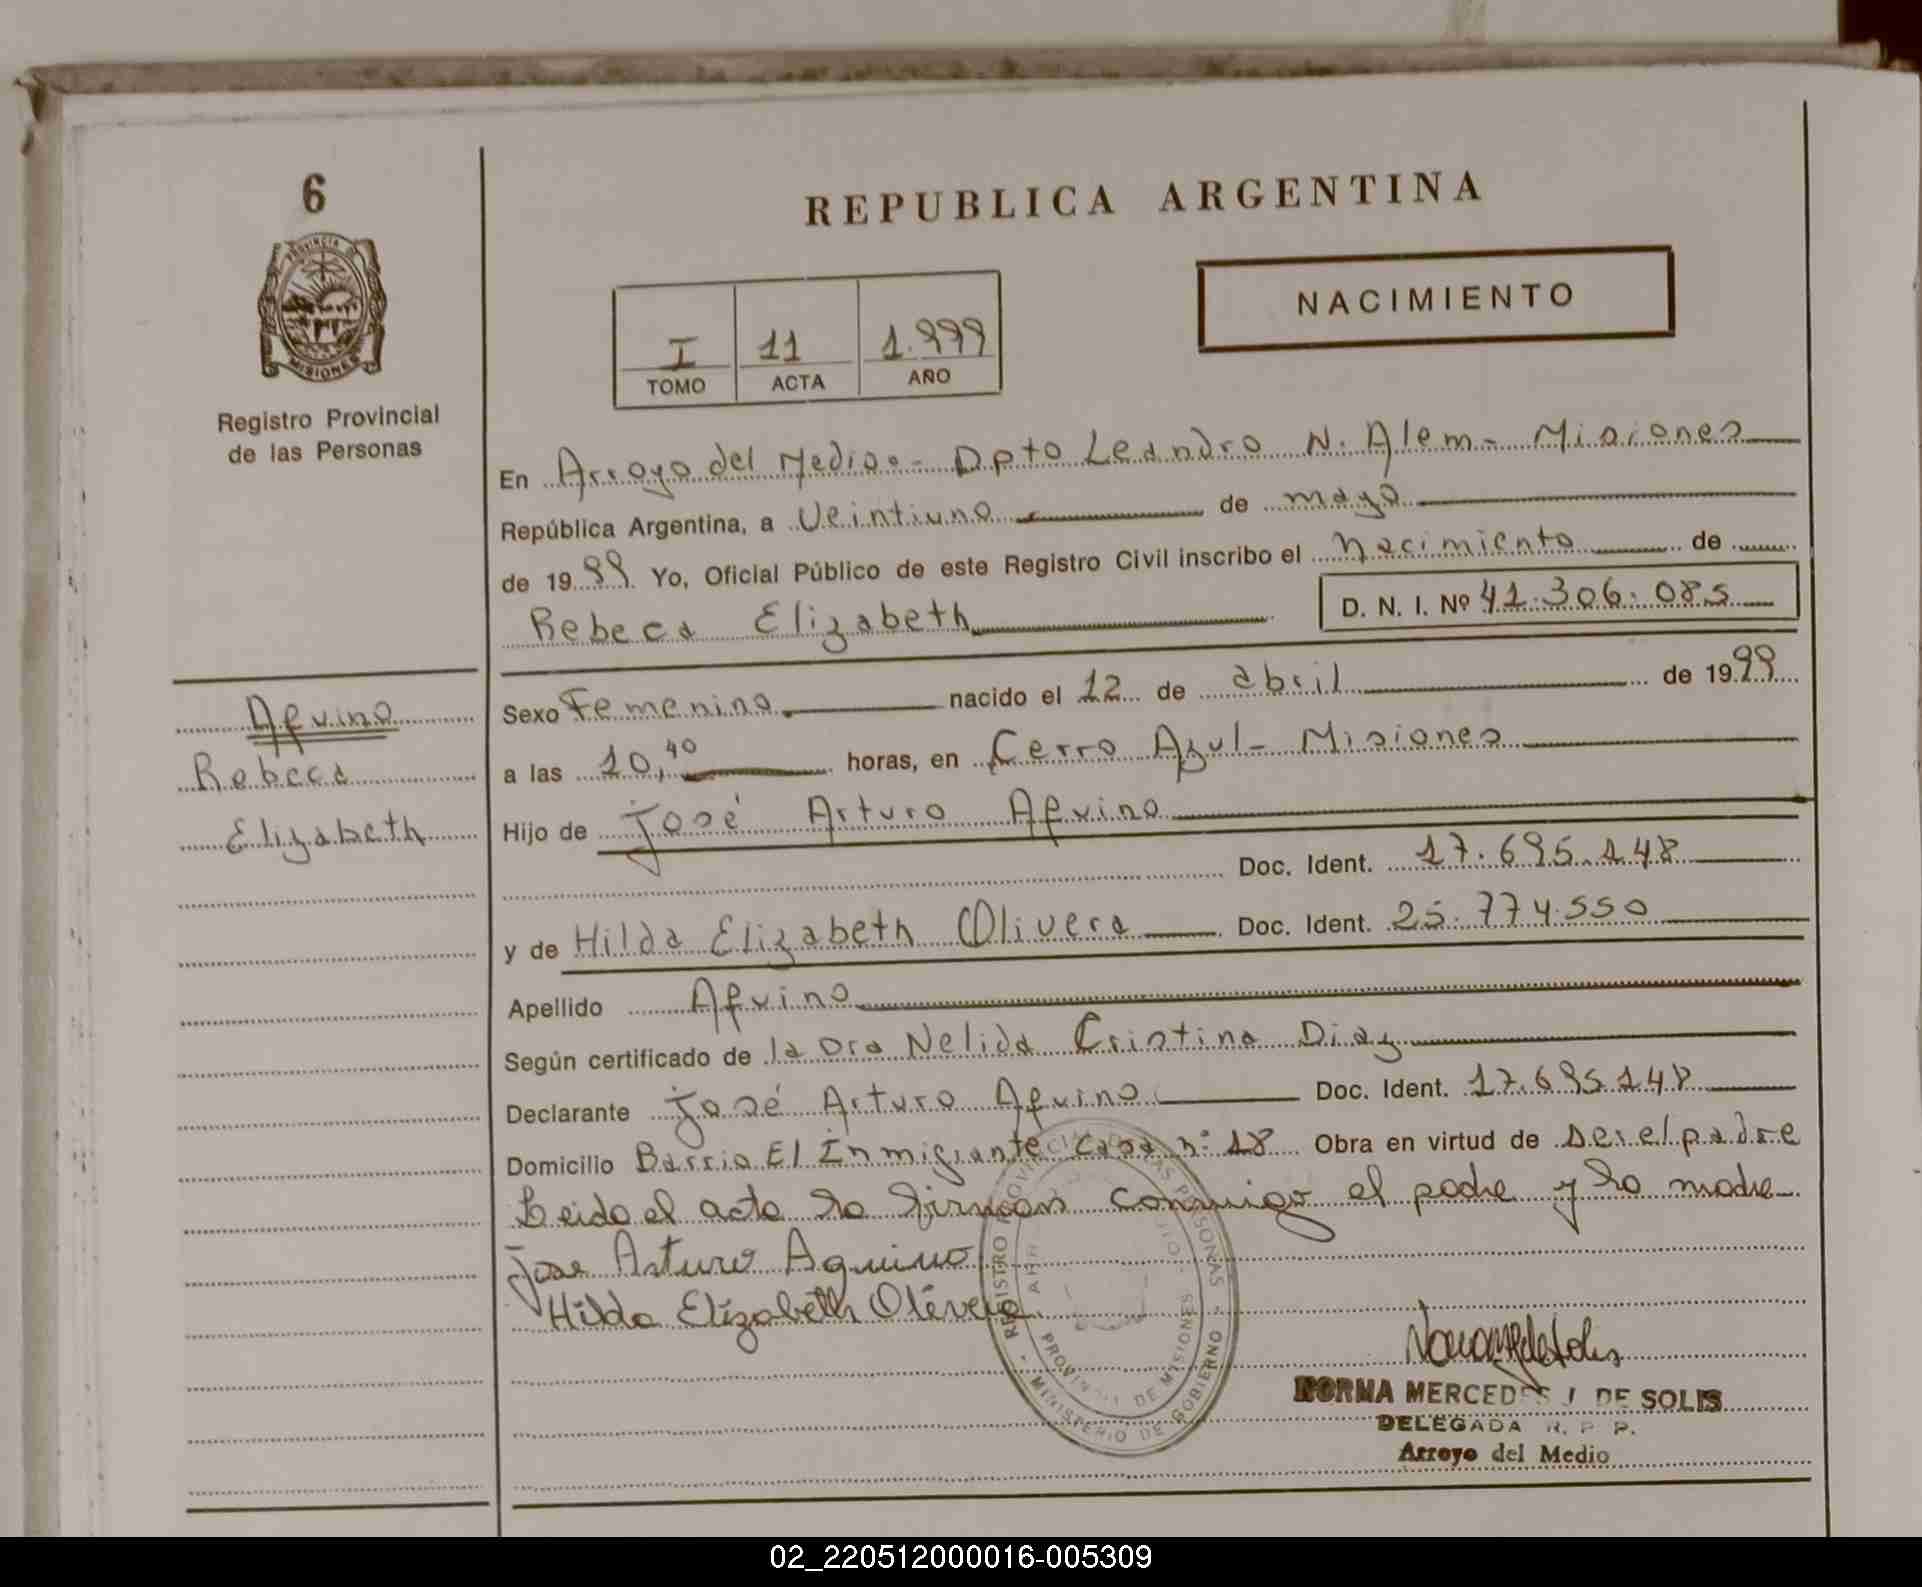 6
PROVINCIA DE
MISIONES
Registro Provincial
de las Personas
REPUBLICA ARGENTINA
NACIMIENTO
I 11 1.999
TOMO ACTA AÑO
En Arroyo del Medio.- Dpto Leandro N. Alem - Misiones
República Argentina, a Veintiuno de mayo
de 1999 Yo, Oficial Público de este Registro Civil inscribo el nacimiento de
Rebeca Elizabeth D. N. I. Nº 41.306.085
Aquino
Rebeca
Elizabeth
Sexo Femenino nacido el 12 de abril de 1999
a las 10,40 horas, en Cerro Azul - Misiones
Hijo de José Arturo Aquino
Doc. Ident. 17.695.148
y de Hilda Elizabeth Olivera Doc. Ident. 25.774.550
Apellido Aquino
Según certificado de la Dra Nelida Cristina Diaz
Declarante José Arturo Aquino Doc. Ident. 17.695.148
Domicilio Barrio El Inmigrante casa nº 18 Obra en virtud de ser el padre
Leido el acta la firman conmigo el padre y la madre
Jose Arturo Aquino
Hilda Elizabeth Olivera
REGISTRO PROVINCIAL DE LAS PERSONAS
PROVINCIA DE MISIONES
MINISTERIO DE GOBIERNO
NORMA MERCEDES J. DE SOLIS
DELEGADA R. P. P.
Arroyo del Medio
02_220512000016-005309